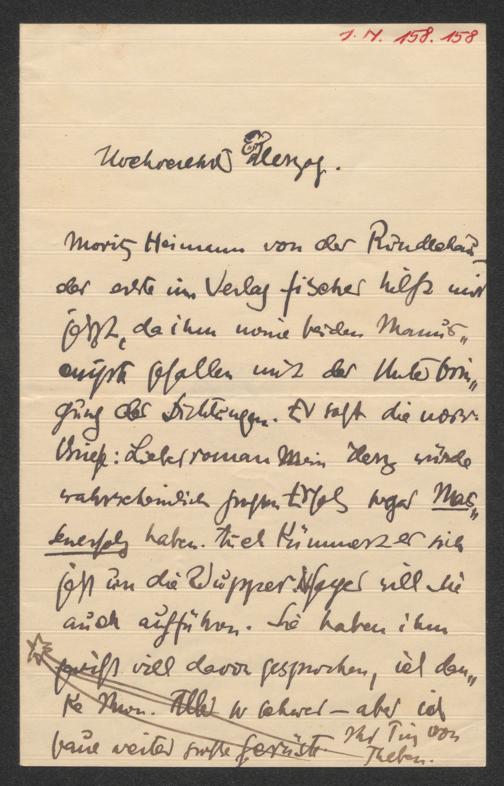 J. N. 158.158
Hochverehrter Herzog.
Moritz Heimann von der Rundschau
der erste im Verlag Fischer hilft mir
jetzt, da ihm meine beiden Manus„
cripte gefallen mit der Unterbrin„
gung der Dichtungen. Er sagt die norw.
Briefe: Liebesroman Mein Herz würde
wahrscheinlich großen Erfolg sogar Mas„
senerfolg haben. Auch kümmert er sich
jetzt um die Wupper. will sie
auch aufführen. Sie haben ihm
gewiß viell davon gesprochen, ich dan„
ke Ihnen. Alles so schwer – aber ich
baue weiter große Gerüste. Ihr Tin von
Theben.